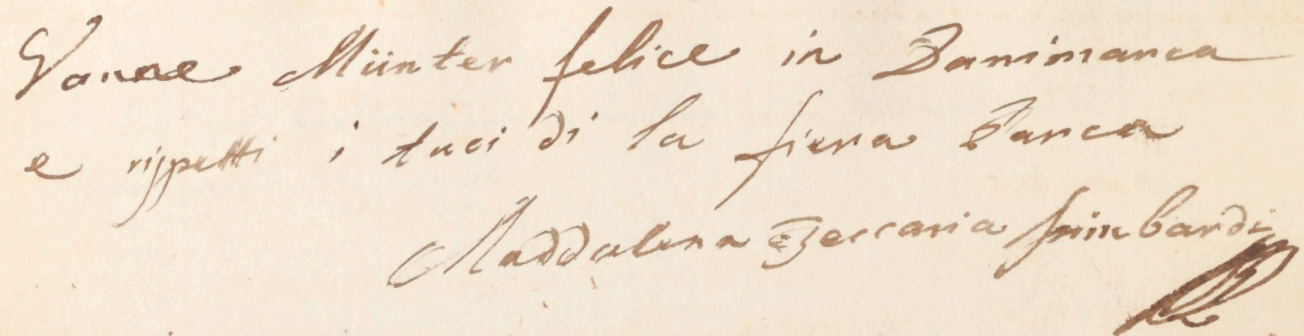 Vanne Münter felice in Danimarca
e rispetti i tuoi di la fiera Parca
Maddalena Beccaria